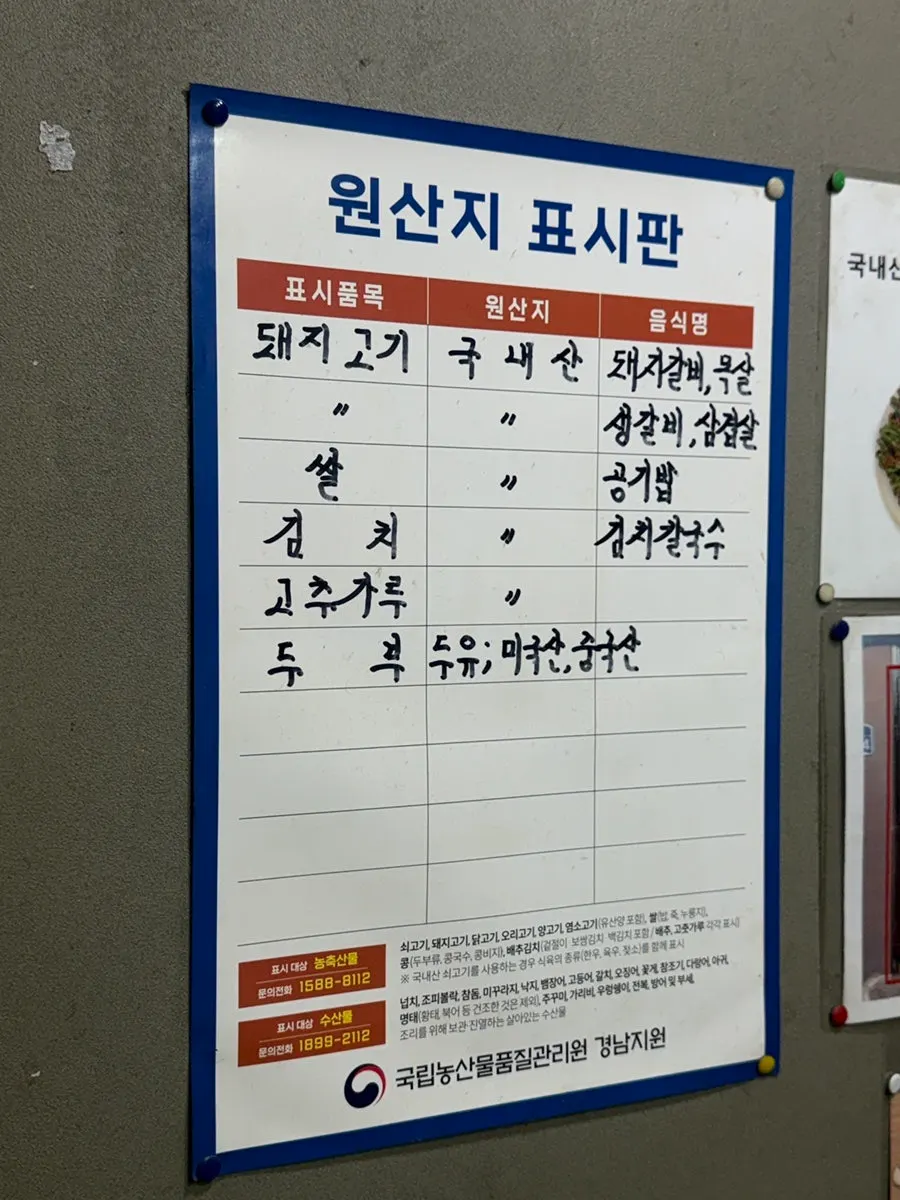 원산지 표시판
표시품목 원산지 음식명
돼지고기 국내산 돼지갈비, 목살
〃 〃 생갈비, 삼겹살
쌀 〃 공기밥
김치 〃 김치칼국수
고추가루 〃
두부 두유; 미국산, 중국산
표시 대상 농축산물
문의전화 1588-8112
쇠고기, 돼지고기, 닭고기, 오리고기, 양고기, 염소고기(유산양 포함), 쌀(밥, 죽, 누룽지),
콩(두부류, 콩국수, 콩비지), 배추김치(겉절이·보쌈김치·백김치 포함 / 배추, 고춧가루 각각 표시)
※ 국내산 쇠고기를 사용하는 경우 식육의 종류(한우, 육우, 젖소)를 함께 표시
표시 대상 수산물
문의전화 1899-2112
넙치, 조피볼락, 참돔, 미꾸라지, 낙지, 뱀장어, 고등어, 갈치, 오징어, 꽃게, 참조기, 다랑어, 아귀,
명태(황태, 북어 등 건조한 것은 제외), 주꾸미, 가리비, 우렁쉥이, 전복, 방어 및 부세,
조리를 위해 보관·진열하는 살아있는 수산물
국립농산물품질관리원 경남지원
국내산